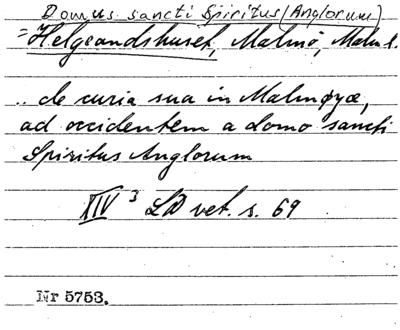 Domus sancti Spiritus (Anglorum)
= Helgeandshuset, Malmö, Malm l.
.. de curia sua in Malmøyæ,
ad occidentem a domo sancti
Spiritus Anglorum
XIV 3 LD vet. s. 69
Nr 5753.